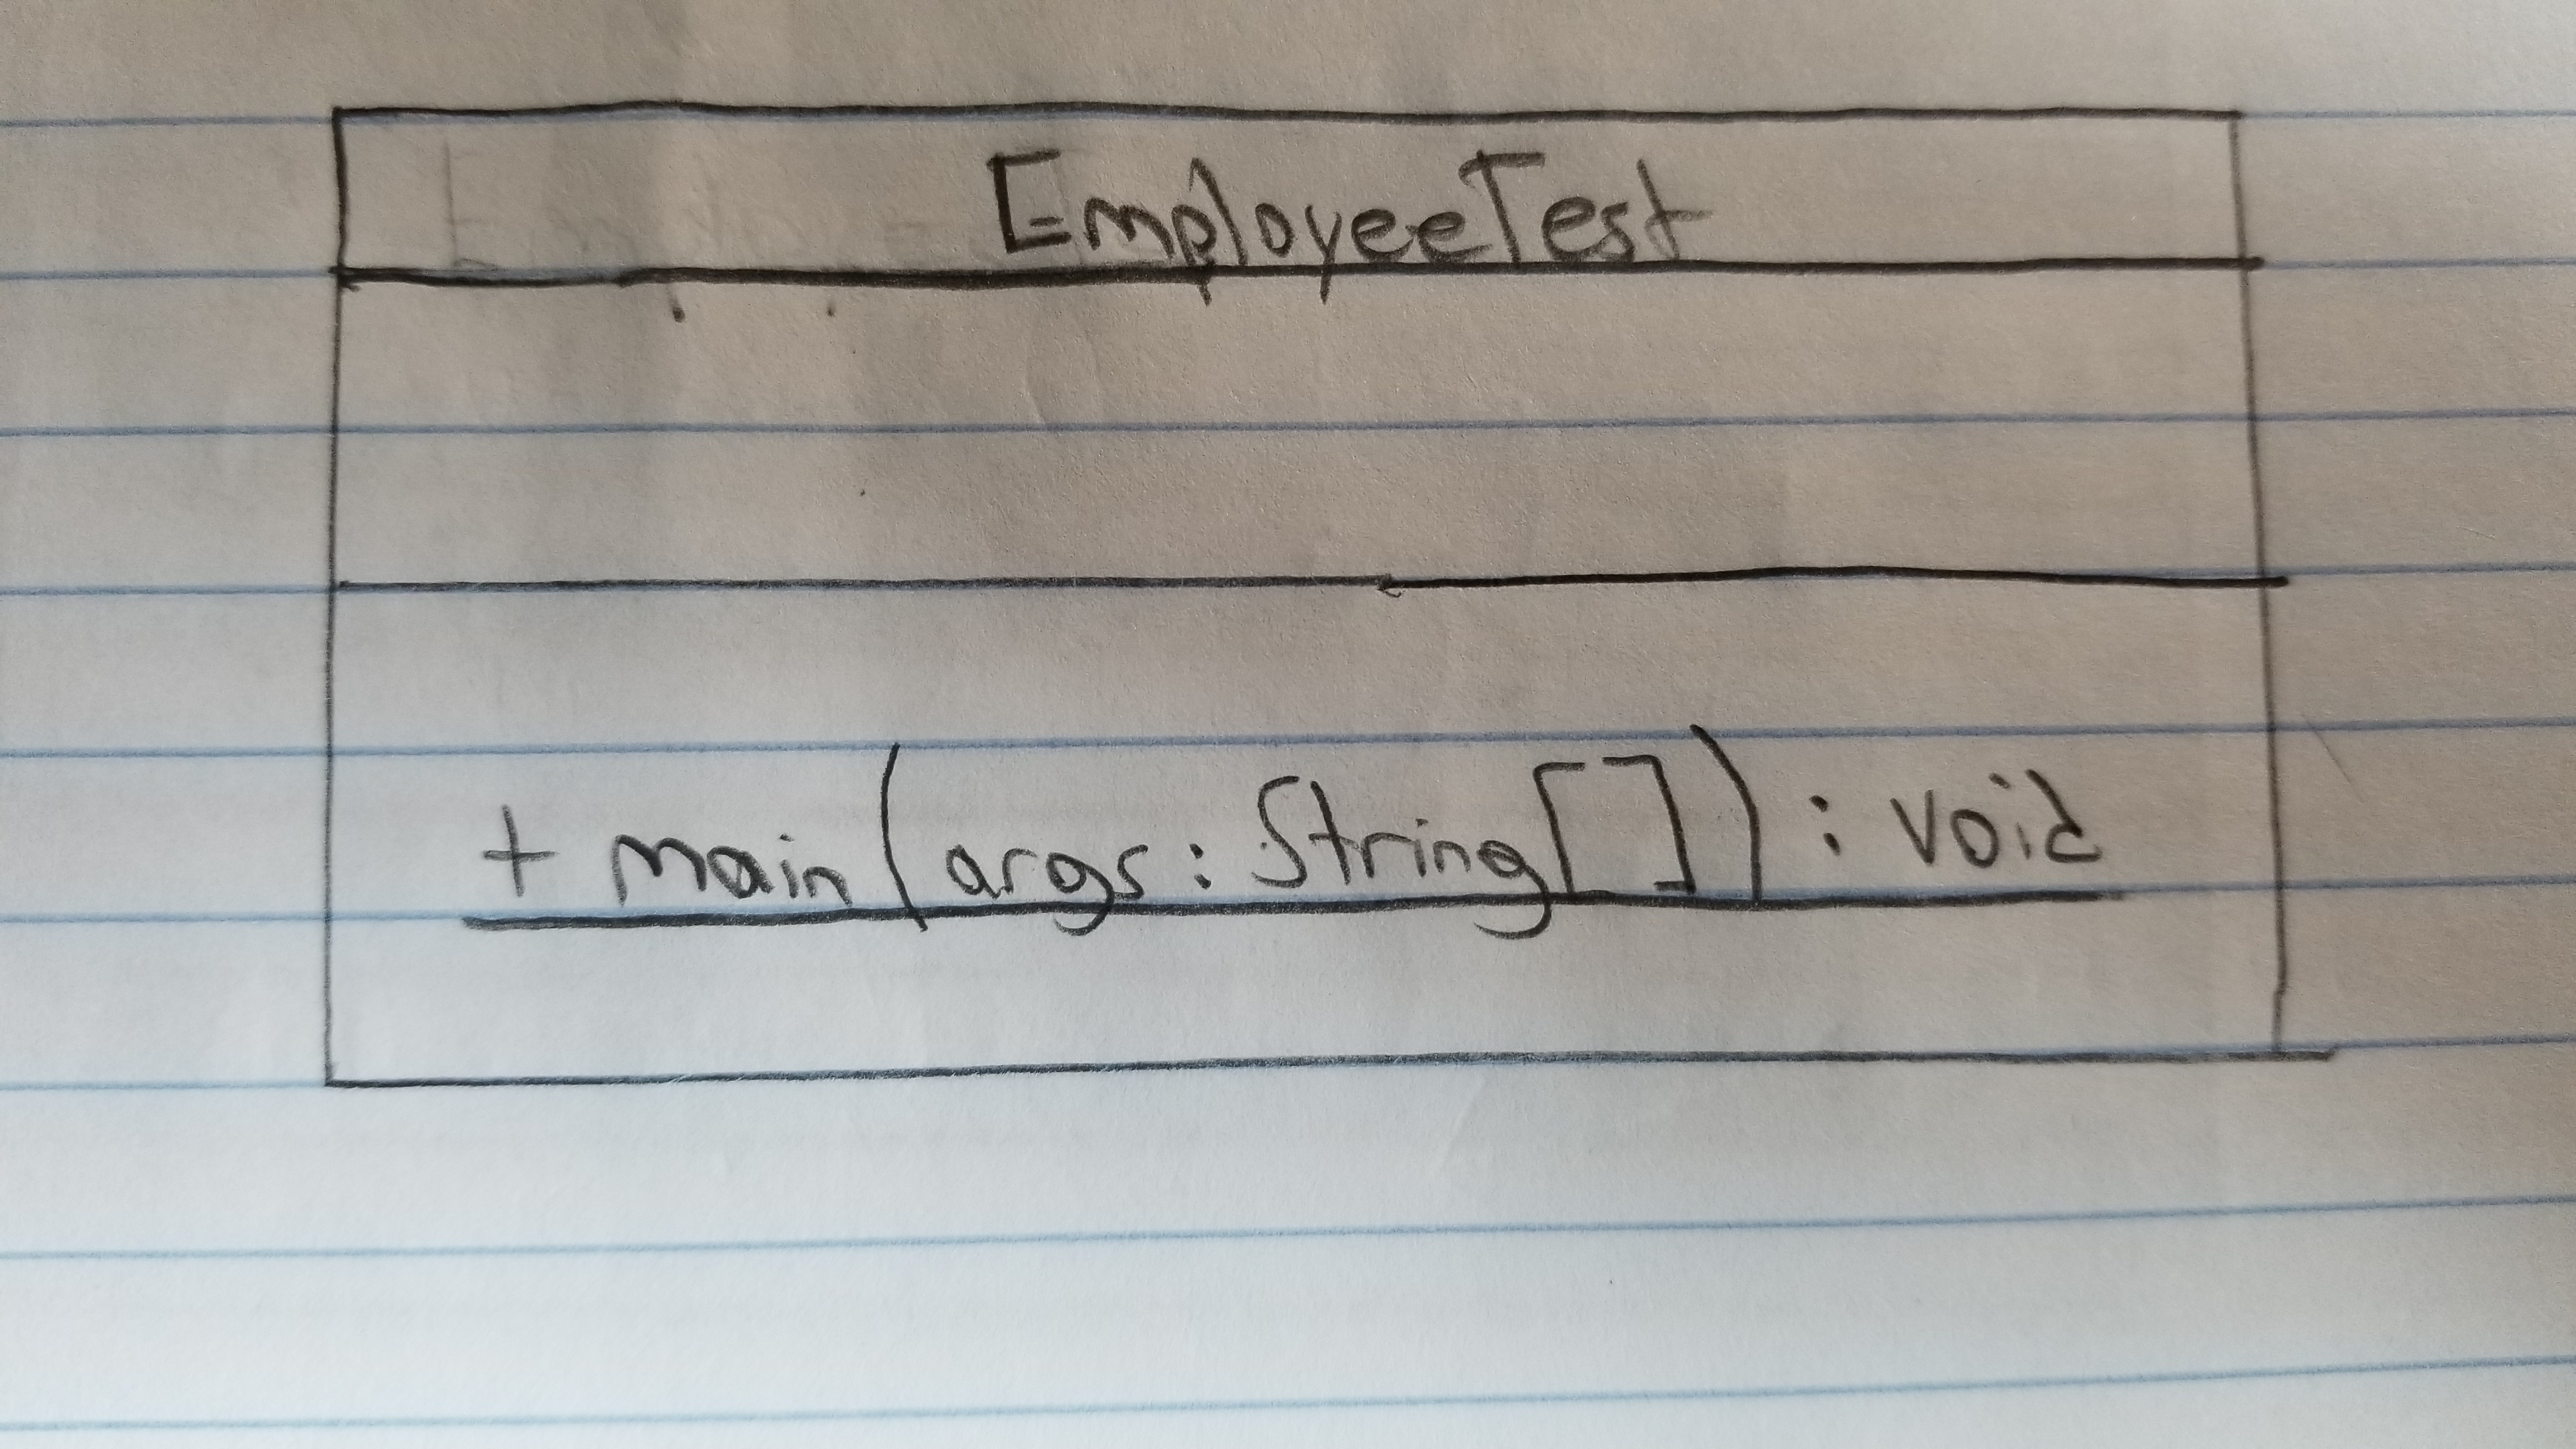 EmployeeTest
+ main(args: String[]) : void